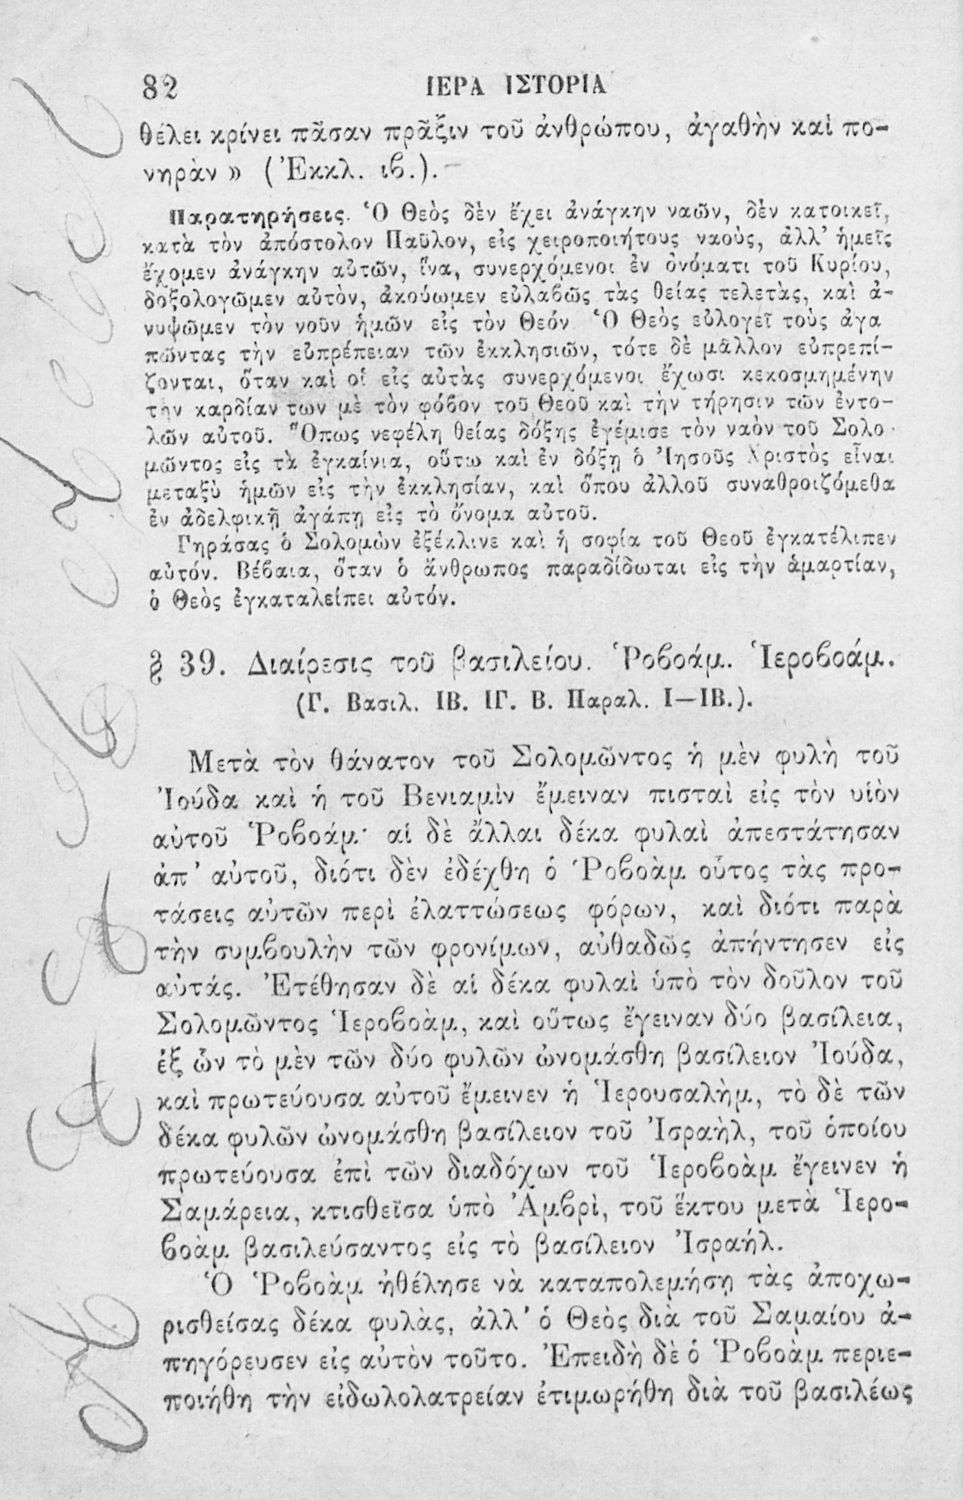 82 ΙΕΡΑ ΙΣΤΟΡΙΑ
θέλει κρίνει πᾶσαν πρᾶξιν τοῦ ἀνθρώπου, ἀγαθὴν καὶ πο-
νηρὰν» (Ἐκκλ. ιϐ.).
Παρατηρήσεις. Ὁ Θεὸς δὲν ἔχει ἀνάγκην ναῶν, δὲν κατοικεῖ,
κατὰ τὸν ἀπόστολον Παῦλον, εἰς χειροποιήτους ναοὺς, ἀλλ’ ἡμεῖς
ἔχομεν ἀνάγκην αὐτῶν, ἵνα, συνερχόμενοι ἐν ὀνόματι τοῦ Κυρίου,
δοξολογῶμεν αὐτὸν, ἀκούωμεν εὐλαβῶς τὰς θείας τελετὰς, καὶ ἀ-
νυψῶμεν τὸν νοῦν ἡμῶν εἰς τὸν Θεόν Ὁ Θεὸς εὐλογεῖ τοὺς ἀγα
πῶντας τὴν εὐπρέπειαν τῶν ἐκκλησιῶν, τότε δὲ μᾶλλον εὐπρεπί-
ζονται, ὅταν καὶ οἱ εἰς αὐτὰς συνερχόμενοι ἔχωσι κεκοσμημένην
τὴν καρδίαν των μὲ τὸν φόβον τοῦ Θεοῦ καὶ τὴν τήρησιν τῶν ἐντο-
λῶν αὐτοῦ. Ὅπως νεφέλη θείας δόξης ἐγέμισε τὸν ναὸν τοῦ Σολο-
μῶντος εἰς τὰ ἐγκαίνια, οὕτω καὶ ἐν δόξῃ ὁ Ἰησοῦς Χριστὸς εἶναι
μεταξὺ ἡμῶν εἰς τὴν ἐκκλησίαν, καὶ ὅπου ἀλλοῦ συναθροιζόμεθα
ἐν ἀδελφικῇ ἀγάπῃ εἰς τὸ ὄνομα αὐτοῦ.
Γηράσας ὁ Σολομὼν ἐξέκλινε καὶ ἡ σοφία τοῦ Θεοῦ ἐγκατέλιπεν
αὐτόν. Βέβαια, ὅταν ὁ ἄνθρωπος παραδίδωται εἰς τὴν ἁμαρτίαν,
ὁ Θεὸς ἐγκαταλείπει αὐτόν.
§ 39. Διαίρεσις τοῦ βασιλείου. Ῥοβοάμ. Ἱεροβοάμ.
(Γ. Βασιλ. ΙΒ. ΙΓ. Β. Παραλ. Ι—ΙΒ.).
Μετὰ τὸν θάνατον τοῦ Σολομῶντος ἡ μὲν φυλὴ τοῦ
Ἰούδα καὶ ἡ τοῦ Βενιαμὶν ἔμειναν πισταὶ εἰς τὸν υἱὸν
αὐτοῦ Ῥοβοάμ· αἱ δὲ ἄλλαι δέκα φυλαὶ ἀπεστάτησαν
ἀπ’ αὐτοῦ, διότι δὲν ἐδέχθη ὁ Ῥοβοὰμ οὗτος τὰς προ-
τάσεις αὐτῶν περὶ ἐλαττώσεως φόρων, καὶ διότι παρὰ
τὴν συμβουλὴν τῶν φρονίμων, αὐθαδῶς ἀπήντησεν εἰς
αὐτάς. Ἐτέθησαν δὲ αἱ δέκα φυλαὶ ὑπὸ τὸν δοῦλον τοῦ
Σολομῶντος Ἱεροβοὰμ, καὶ οὕτως ἔγειναν δύο βασίλεια,
ἐξ ὧν τὸ μὲν τῶν δύο φυλῶν ὠνομάσθη βασίλειον Ἰούδα,
καὶ πρωτεύουσα αὐτοῦ ἔμεινεν ἡ Ἱερουσαλὴμ, τὸ δὲ τῶν
δέκα φυλῶν ὠνομάσθη βασίλειον τοῦ Ἰσραὴλ, τοῦ ὁποίου
πρωτεύουσα ἐπὶ τῶν διαδόχων τοῦ Ἱεροβοὰμ ἔγεινεν ἡ
Σαμάρεια, κτισθεῖσα ὑπὸ Ἀμβρὶ, τοῦ ἕκτου μετὰ Ἱερο-
βοὰμ βασιλεύσαντος εἰς τὸ βασίλειον Ἰσραήλ.
Ὁ Ῥοβοὰμ ἠθέλησε νὰ καταπολεμήσῃ τὰς ἀποχω-
ρισθείσας δέκα φυλὰς, ἀλλ’ ὁ Θεὸς διὰ τοῦ Σαμαίου ἀ-
πηγόρευσεν εἰς αὐτὸν τοῦτο. Ἐπειδὴ δὲ ὁ Ῥοβοὰμ περιε-
ποιήθη τὴν εἰδωλολατρείαν ἐτιμωρήθη διὰ τοῦ βασιλέως